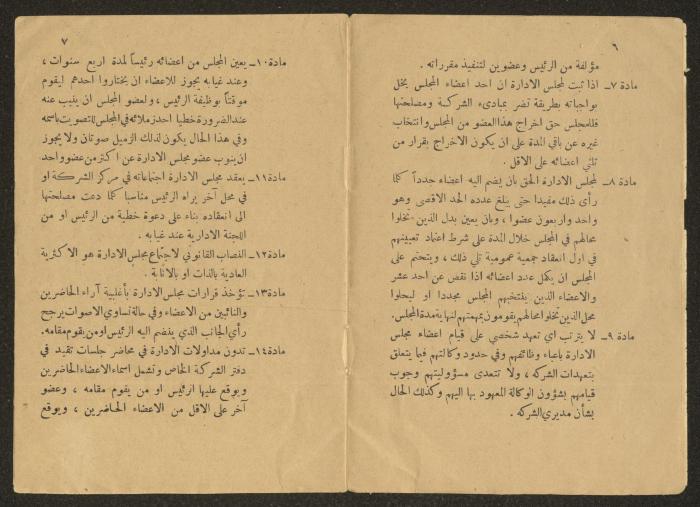 ٦
مؤلفة من الرئيس وعضوين لتنفيذ مقرراته .
مادة ٧ـ اذا ثبت لمجلس الادارة ان احد اعضاء المجلس يخل
بواجباته بطريقة تضر بمبادىء الشركة ومصلحتها
فللمجلس حق اخراج هذا العضو من المجلس وانتخاب
غيره عن باقي المدة على ان يكون الاخراج بقرار من
ثلثي اعضائه على الاقل .
مادة ٨ـ لمجلس الادارة الحق بان يضم اليه اعضاء جدداً كلما
رأى ذلك مفيدا حتى يبلغ عدده الحد الاقصى وهو
واحد واربعون عضوا ، وبان يعين بدل الذين تخلوا
محالهم في المجلس خلال المدة على شرط اعتماد تعيينهم
في اول انعقاد جمعية عمومية تلي ذلك ، ويتحتم على
المجلس ان يكمل عدد اعضائه اذا نقص عن احد عشر
والاعضاء الذين ينتخبهم المجلس مجددا او ليحلوا
محل الذين تخلوا محالهم يقومون بمهمتهم لنهاية مدة المجلس.
مادة ٩ـ لا يترتب اي تعهد شخصي على قيام اعضاء مجلس
الادارة باعباء وظائفهم وفي حدود وكالتهم فيما يتعلق
بتعهدات الشركه ، ولا تتعدى مسؤوليتهم وجوب
قيامهم بشؤون الوكالة المعهود بها اليهم وكذلك الحال
بشأن مديري الشركه .
٧
مادة ١٠ـ يعين المجلس من اعضائه رئيساً لمدة اربع سنوات ،
وعند غيابه يجوز للاعضاء ان يختاروا احدهم ليقوم
موقتاً بوظيفة الرئيس ، ولعضو المجلس ان ينيب عنه
عند الضرورة خطيا احد زملائه في المجلس للتصويت باسمه
وفي هذا الحال يكون لذلك الزميل صوتان ولا يجوز
ان ينوب عضو مجلس الادارة عن اكثر من عضو واحد
مادة ١١ـ يعقد مجلس الادارة اجتماعاته في مركز الشركة او
في محل آخر يراه الرئيس مناسبا كلما دعت مصلحتها
الى انعقاده بناء على دعوة خطية من الرئيس او من
اللجنة الادارية عند غيابه .
مادة ١٢ـ النصاب القانوني لاجتماع مجلس الادارة هو الاكثرية
العادية بالذات او بالانابة .
مادة ١٣ـ تؤخذ قرارات مجلس الادارة بأغلبية آراء الحاضرين
والنائبين من الاعضاء وفي حالة تساوي الاصوات يرجح
رأي الجانب الذي ينضم اليه الرئيس او من يقوم مقامه.
مادة ١٤ـ تدون مداولات الادارة في محاضر جلسات تقيد في
دفتر الشركة الخاص وتشمل اسماء الاعضاء الحاضرين
ويوقع عليها الرئيس او من يقوم مقامه ، وعضو
آخر على الاقل من الاعضاء الحاضرين ، ويوقع